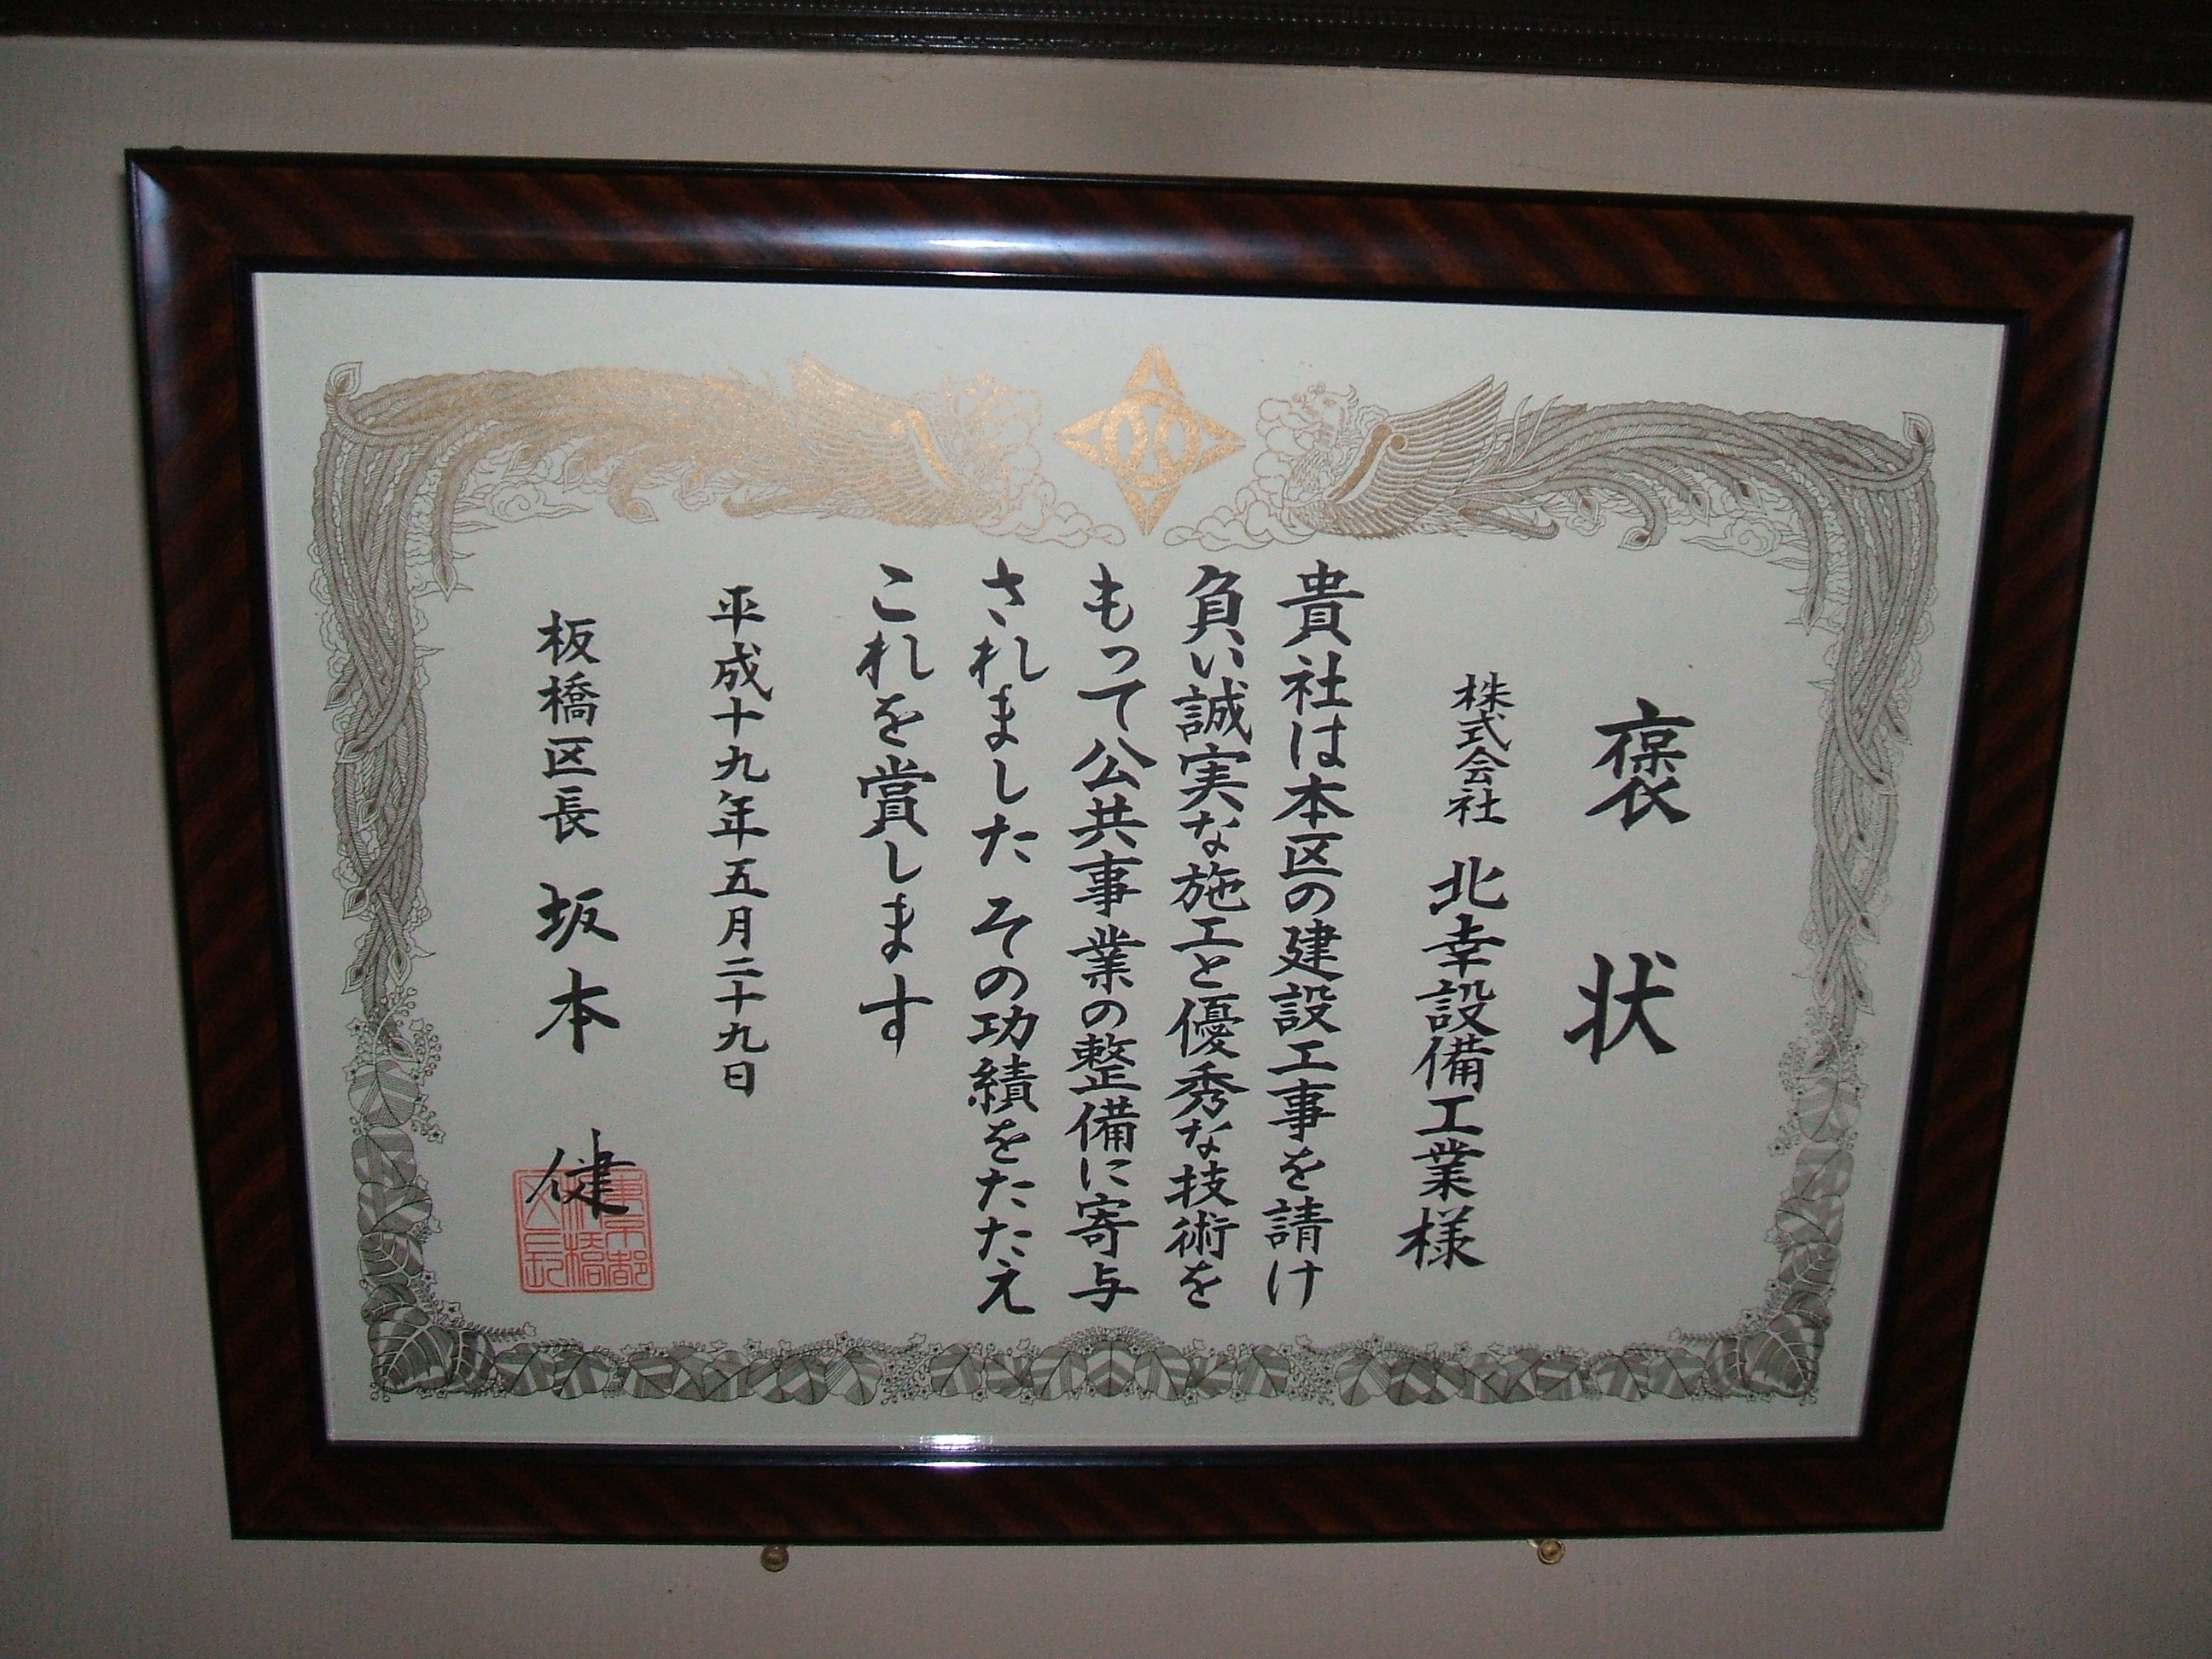 褒状
株式会社 北幸設備工業様
貴社は本区の建設工事を請け
負い誠実な施工と優秀な技術を
もって公共事業の整備に寄与
されました その功績をたたえ
これを賞します
平成十九年五月二十九日
板橋区長 坂本 健